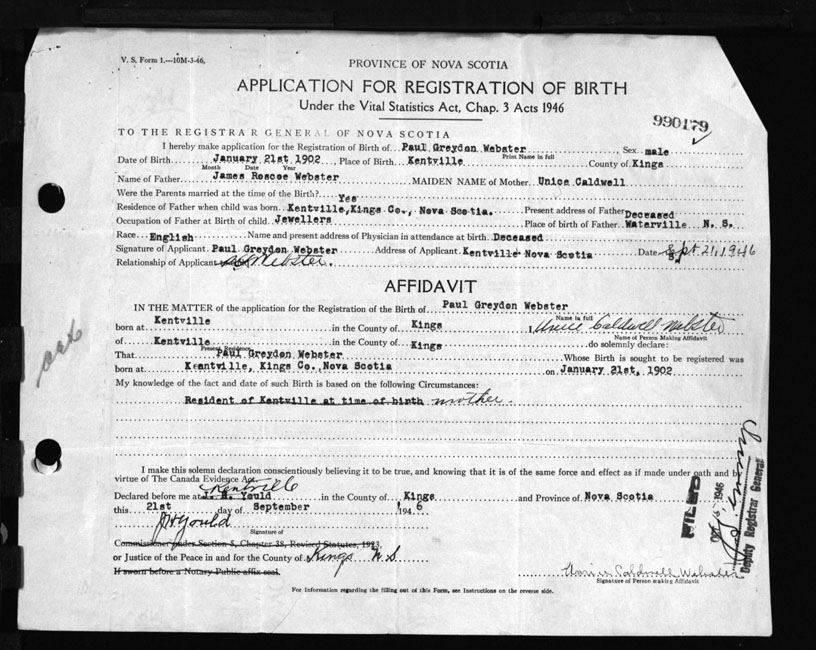 V. S. Form 1.—10M-3-46.
PROVINCE OF NOVA SCOTIA
APPLICATION FOR REGISTRATION OF BIRTH
Under the Vital Statistics Act, Chap. 3 Acts 1946
990179
TO THE REGISTRAR GENERAL OF NOVA SCOTIA
I hereby make application for the Registration of Birth of Paul Greydon Webster, Sex male
Print Name in full
Date of Birth January 21st 1902 Place of Birth Kentville County of Kings
Month Date Year
Name of Father James Roscoe Webster MAIDEN NAME of Mother Unice Caldwell
Were the Parents married at the time of the Birth? Yes
Residence of Father when child was born Kentville, Kings Co., Nova Scotia. Present address of Father Deceased
Occupation of Father at Birth of child Jewellers Place of birth of Father Waterville N. S.
Race English Name and present address of Physician in attendance at birth Deceased
Signature of Applicant Paul Greydon Webster Address of Applicant Kentville Nova Scotia Date Sept 21, 1946
Relationship of Applicant Webster.
AFFIDAVIT
IN THE MATTER of the application for the Registration of the Birth of Paul Greydon Webster
Name in full
born at Kentville in the County of Kings I, Unice Caldwell Webster
Name of Person Making Affidavit
of Kentville in the County of Kings do solemnly declare:
Present Residence
That Paul Greydon Webster Whose Birth is sought to be registered was
born at Keentville, Kings Co., Nova Scotia on January 21st, 1902
My knowledge of the fact and date of such Birth is based on the following Circumstances:
Resident of Kentville at time of birth mother.
I make this solemn declaration conscientiously believing it to be true, and knowing that it is of the same force and effect as if made under oath and by
virtue of The Canada Evidence Act.
Kentville
Declared before me at J. H. Yould in the County of Kings and Province of Nova Scotia
this 21st day of September 1946
JH Yould
Signature of
Commissioner under Section 5, Chapter 38, Revised Statutes, 1923,
or Justice of the Peace in and for the County of Kings N S
If sworn before a Notary Public affix seal.
Unice Caldwell Webster
Signature of Person making Affidavit
For Information regarding the filling out of this Form, see Instructions on the reverse side.
FILED
1946
Deputy Registrar General